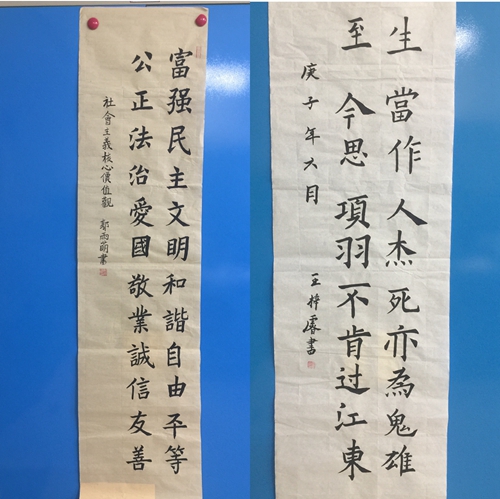 富强民主文明和諧自由平等
公正法治愛國敬業誠信友善
社會主義核心價值觀 鄢雨萌書
生當作人杰死亦為鬼雄
至今思項羽不肯过江東
庚子年六月 王梓睿書